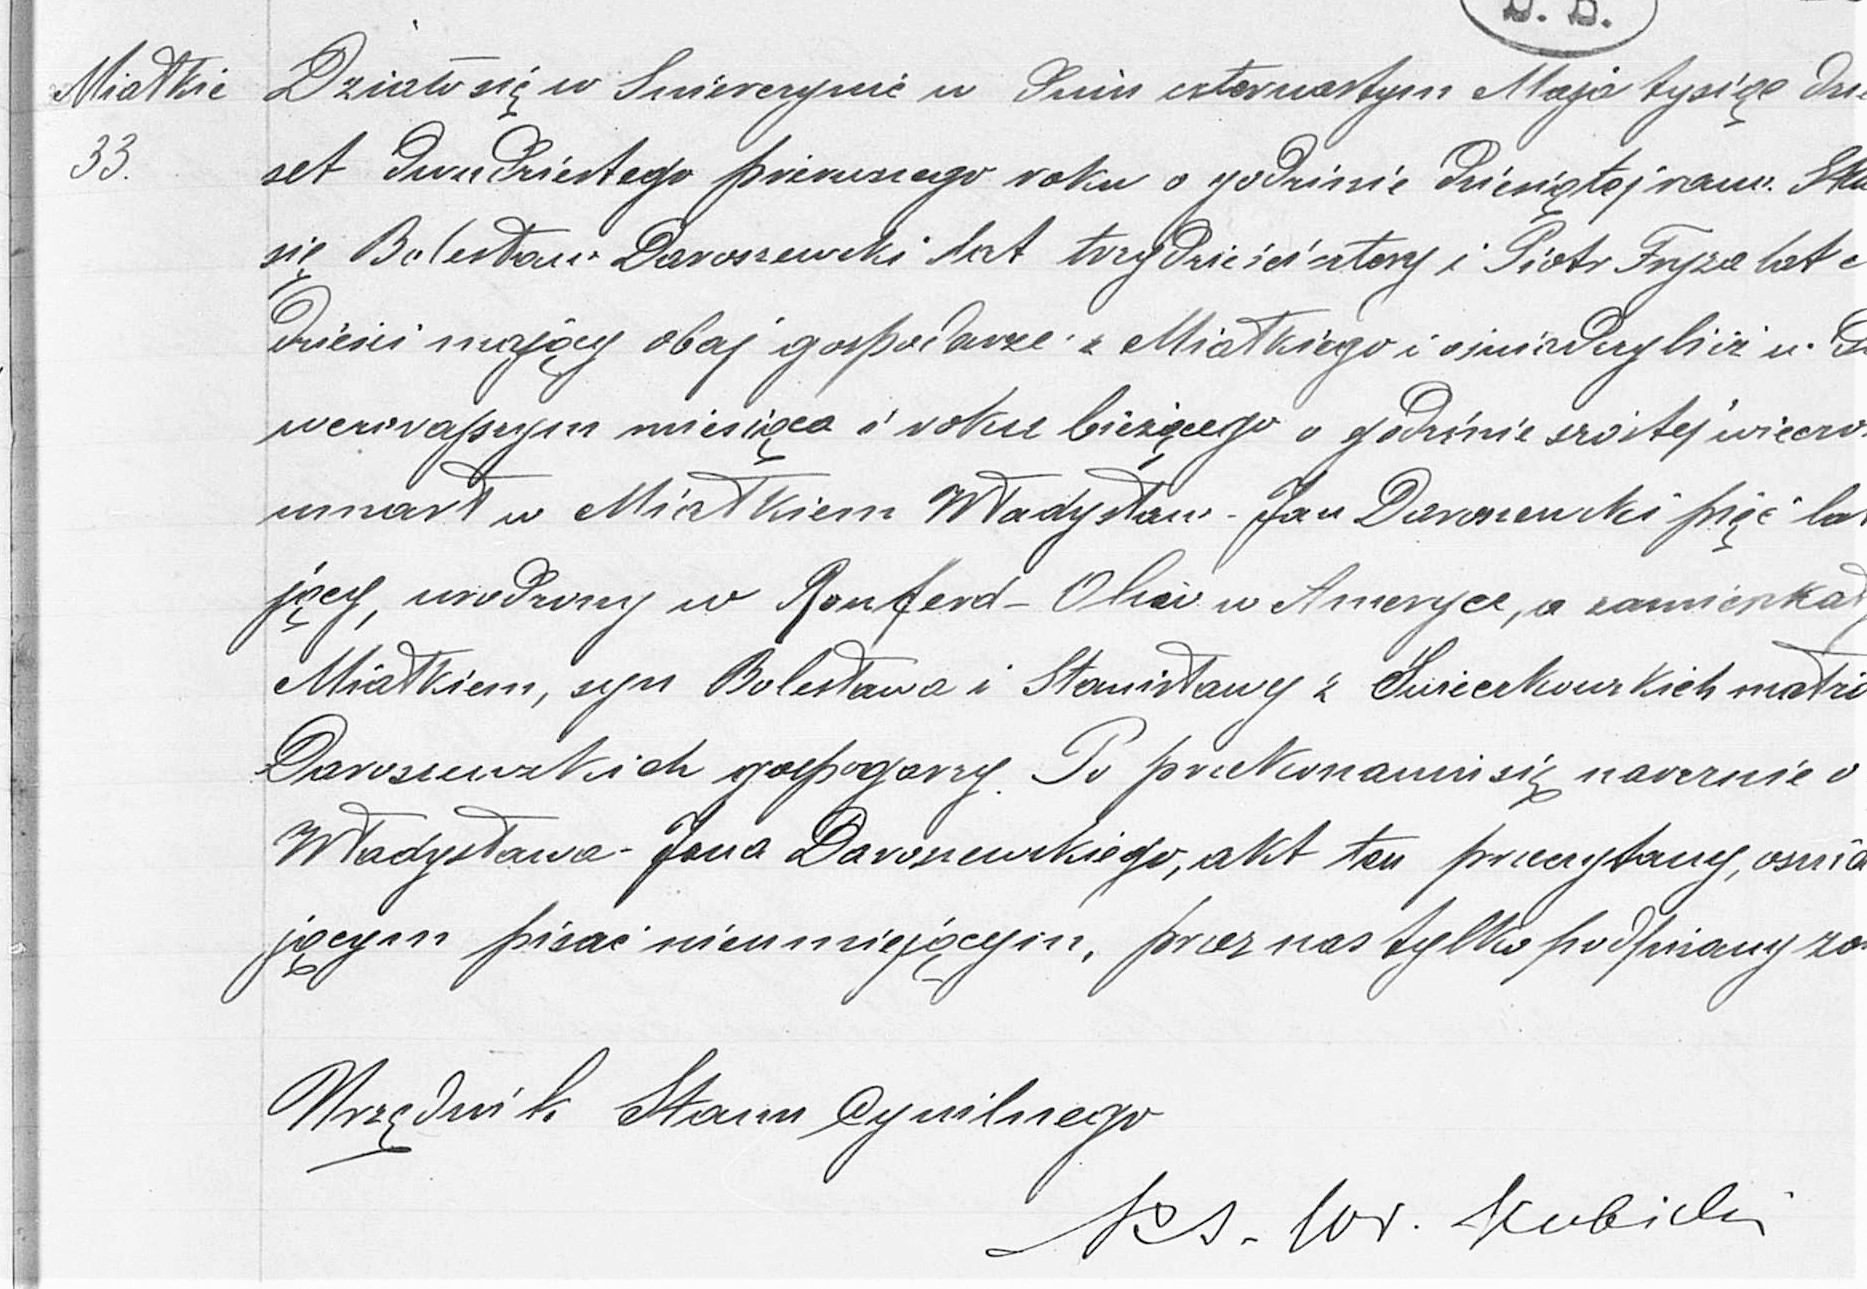 D. B.
Miałkie Działo się w Świerczynie w dniu czternastym Maja tysiąc dzie
33. set dwudziestego pierwszego roku o godzinie dziesiątej rano. Sta
się Bolesław Daroszewski lat trzydzieści cztery i Piotr Fryza lat c
dzieści mający obaj gospodarze z Miałkiego i oświadczyli iż w d
wczorajszym miesiąca i roku bieżącego o godzinie szóstej wieczo
umarł w Miałkiem Władysław-Jan Daroszewski pięć lat
jący, urodzony w Ronferd-Ohio w Ameryce, a zamieszkał
Miałkiem, syn Bolesława i Stanisławy z Świeczkowskich małżo
Daroszewskich gospogarzy. Po przekonaniu się naocznie o
Władysława-Jana Daroszewskiego, akt ten przeczytany, oświa
jącym pisać nieumiejącym, przez nas tylko podpisany zo
Urzędnik Stanu Cywilnego
Ks. Wł. Kubicki